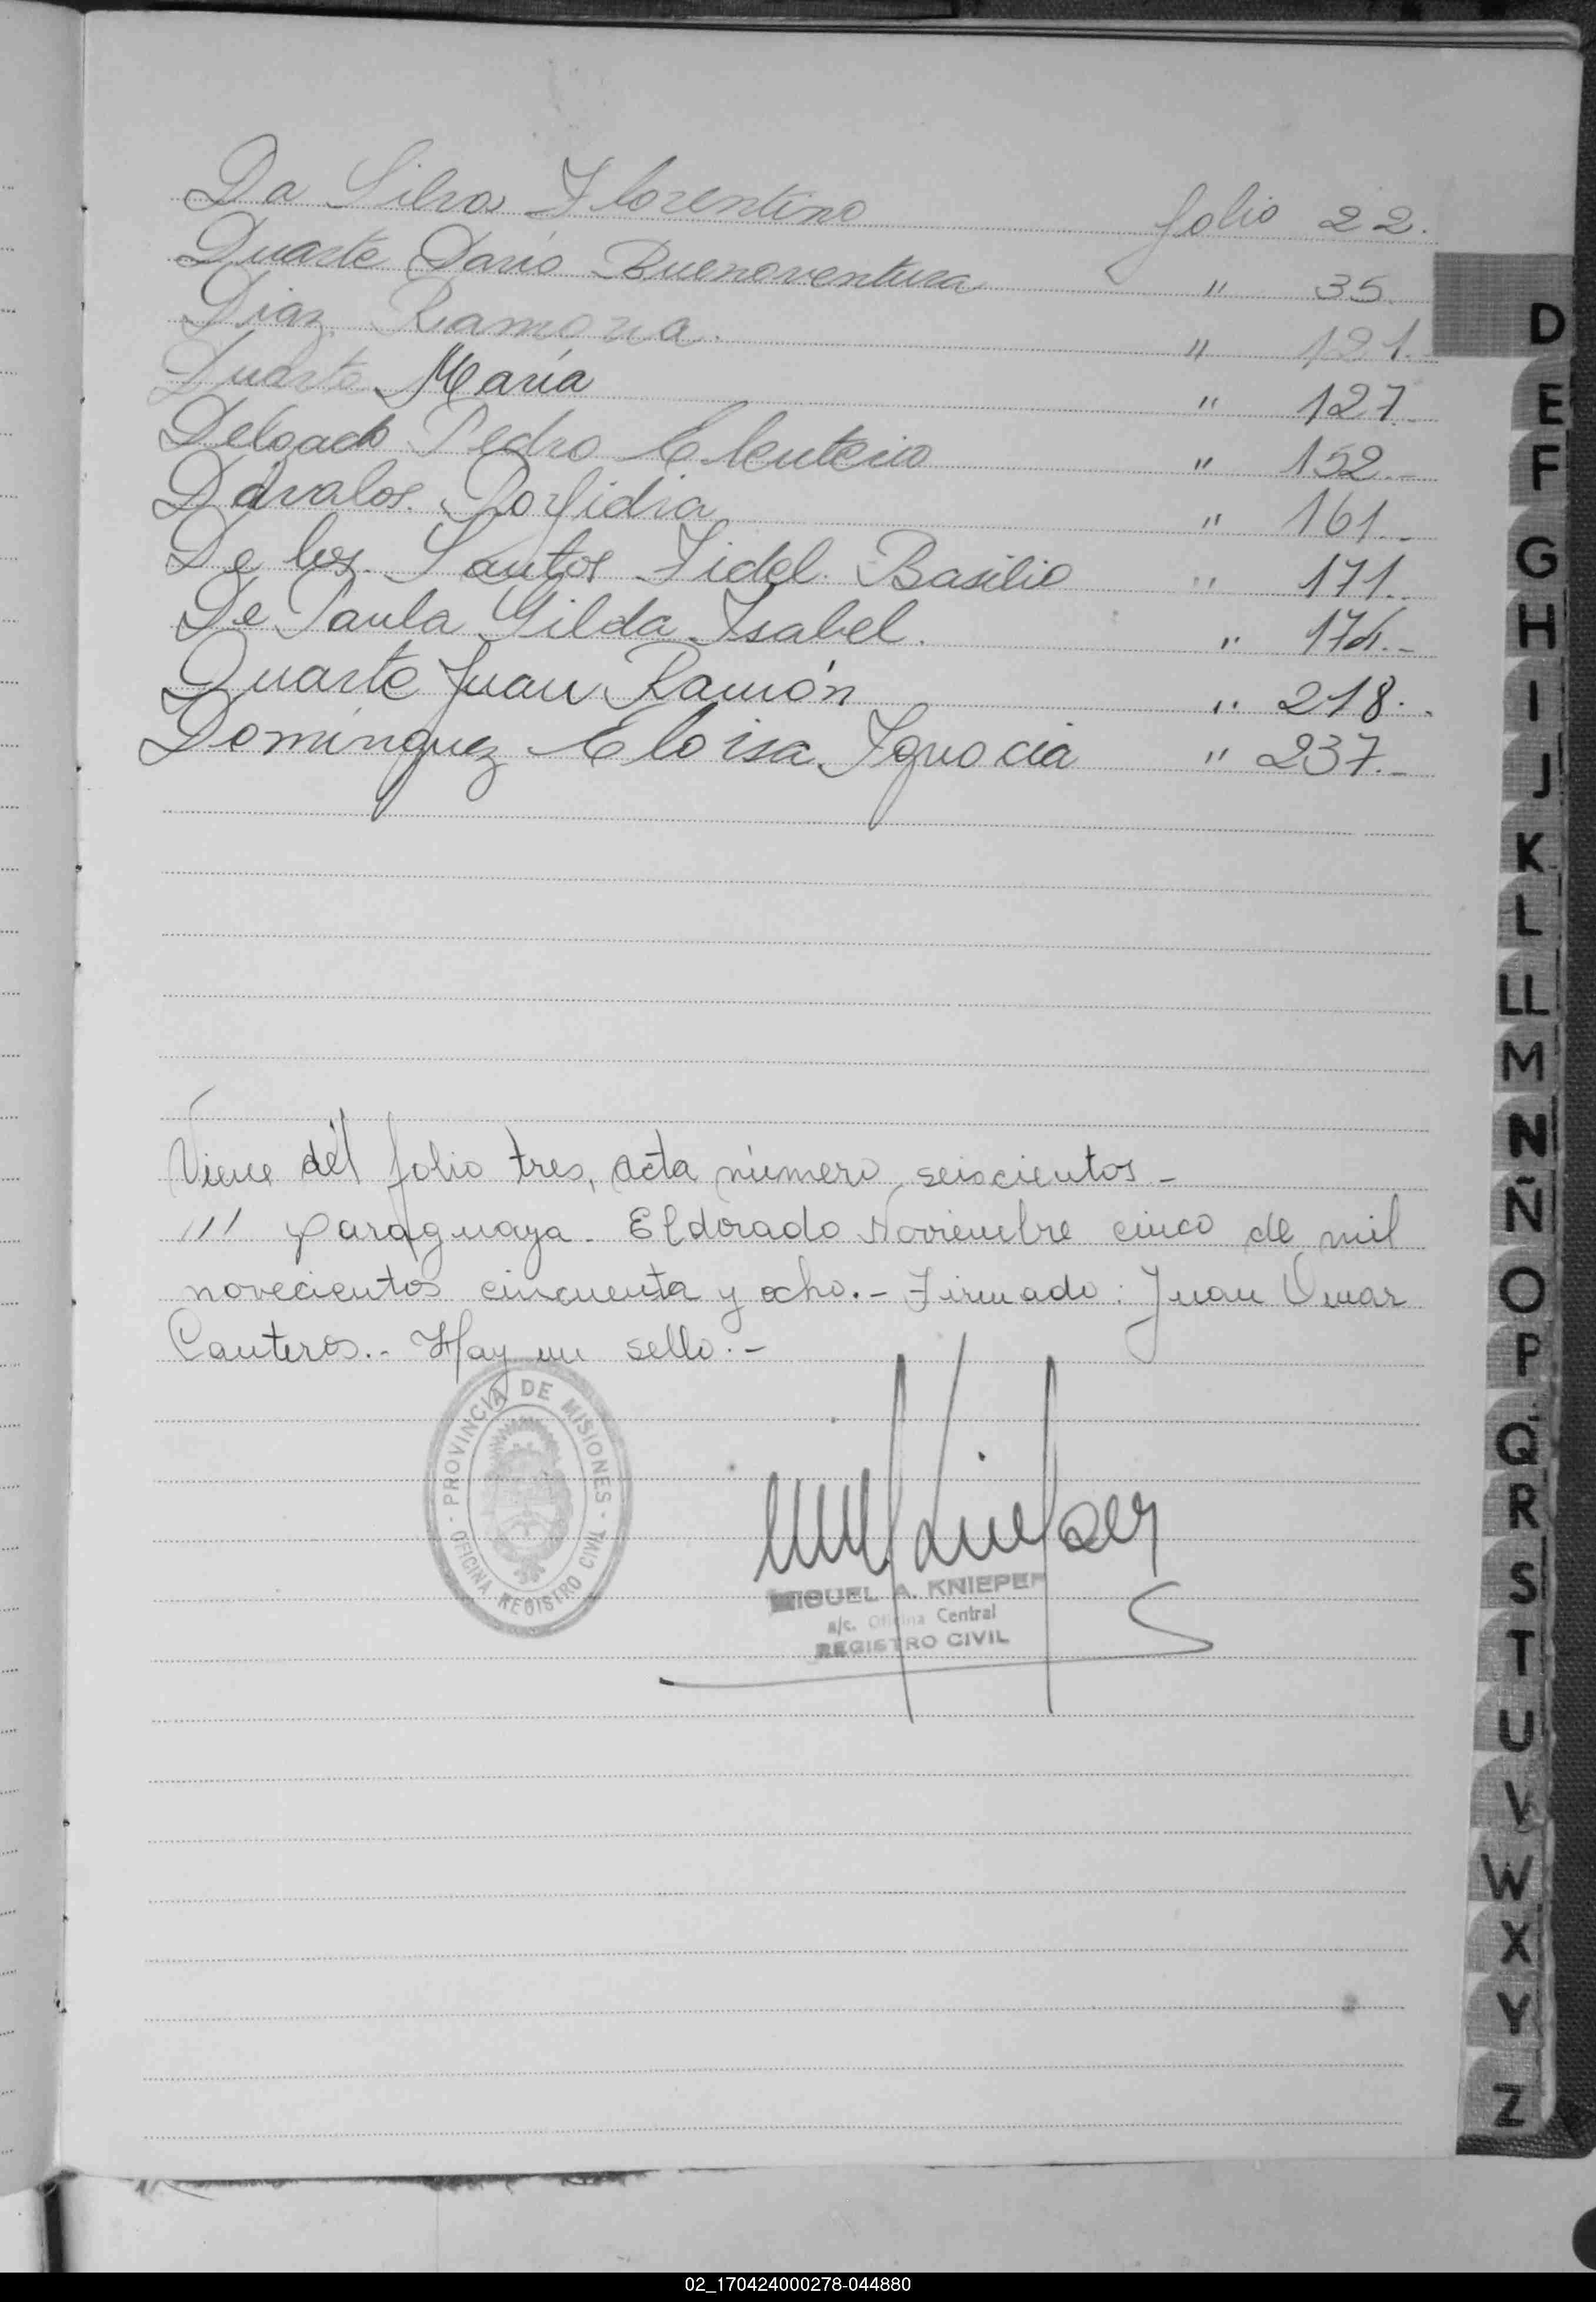 Da Silva Florentino folio 22.
Duarte Darío Buenaventura " 35.
Diaz Ramona. " 121.-
Duarte María " 127.-
Delgado Pedro Eleuterio " 152.-
Dávalos. Porfidia " 161.-
De los Santos Fidel. Basilio " 171.-
De Paula Gilda Isabel. " 174.-
Duarte Juan Ramón " 218.-
Domínguez Eloisa Ignacia " 237.-
Viene del folio tres, acta número seiscientos-
/// paraguaya- Eldorado Noviembre cinco de mil
novecientos cincuenta y ocho.- Firmado: Juan Omar
Canteros.- Hay un sello.-
PROVINCIA DE MISIONES
OFICINA REGISTRO CIVIL
MIGUEL A. KNIEPER
a/c. Oficina Central
REGISTRO CIVIL
D
E
F
G
H
I
J
K
L
LL
M
N
Ñ
O
P
Q
R
S
T
U
V
W
X
Y
Z
02_170424000278-044880